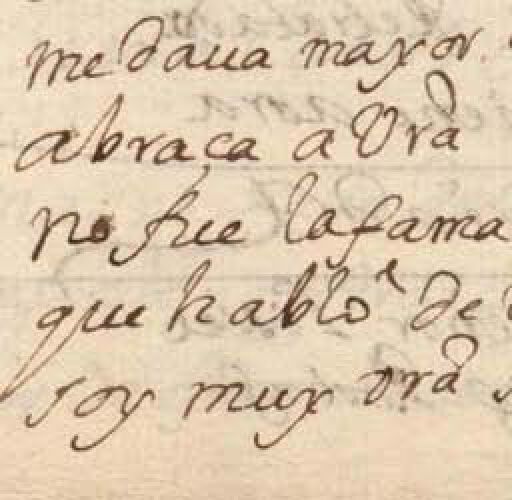 me daua mayor
abraça a Vrã
no fue la fama
que hablo de
soy muy vrã